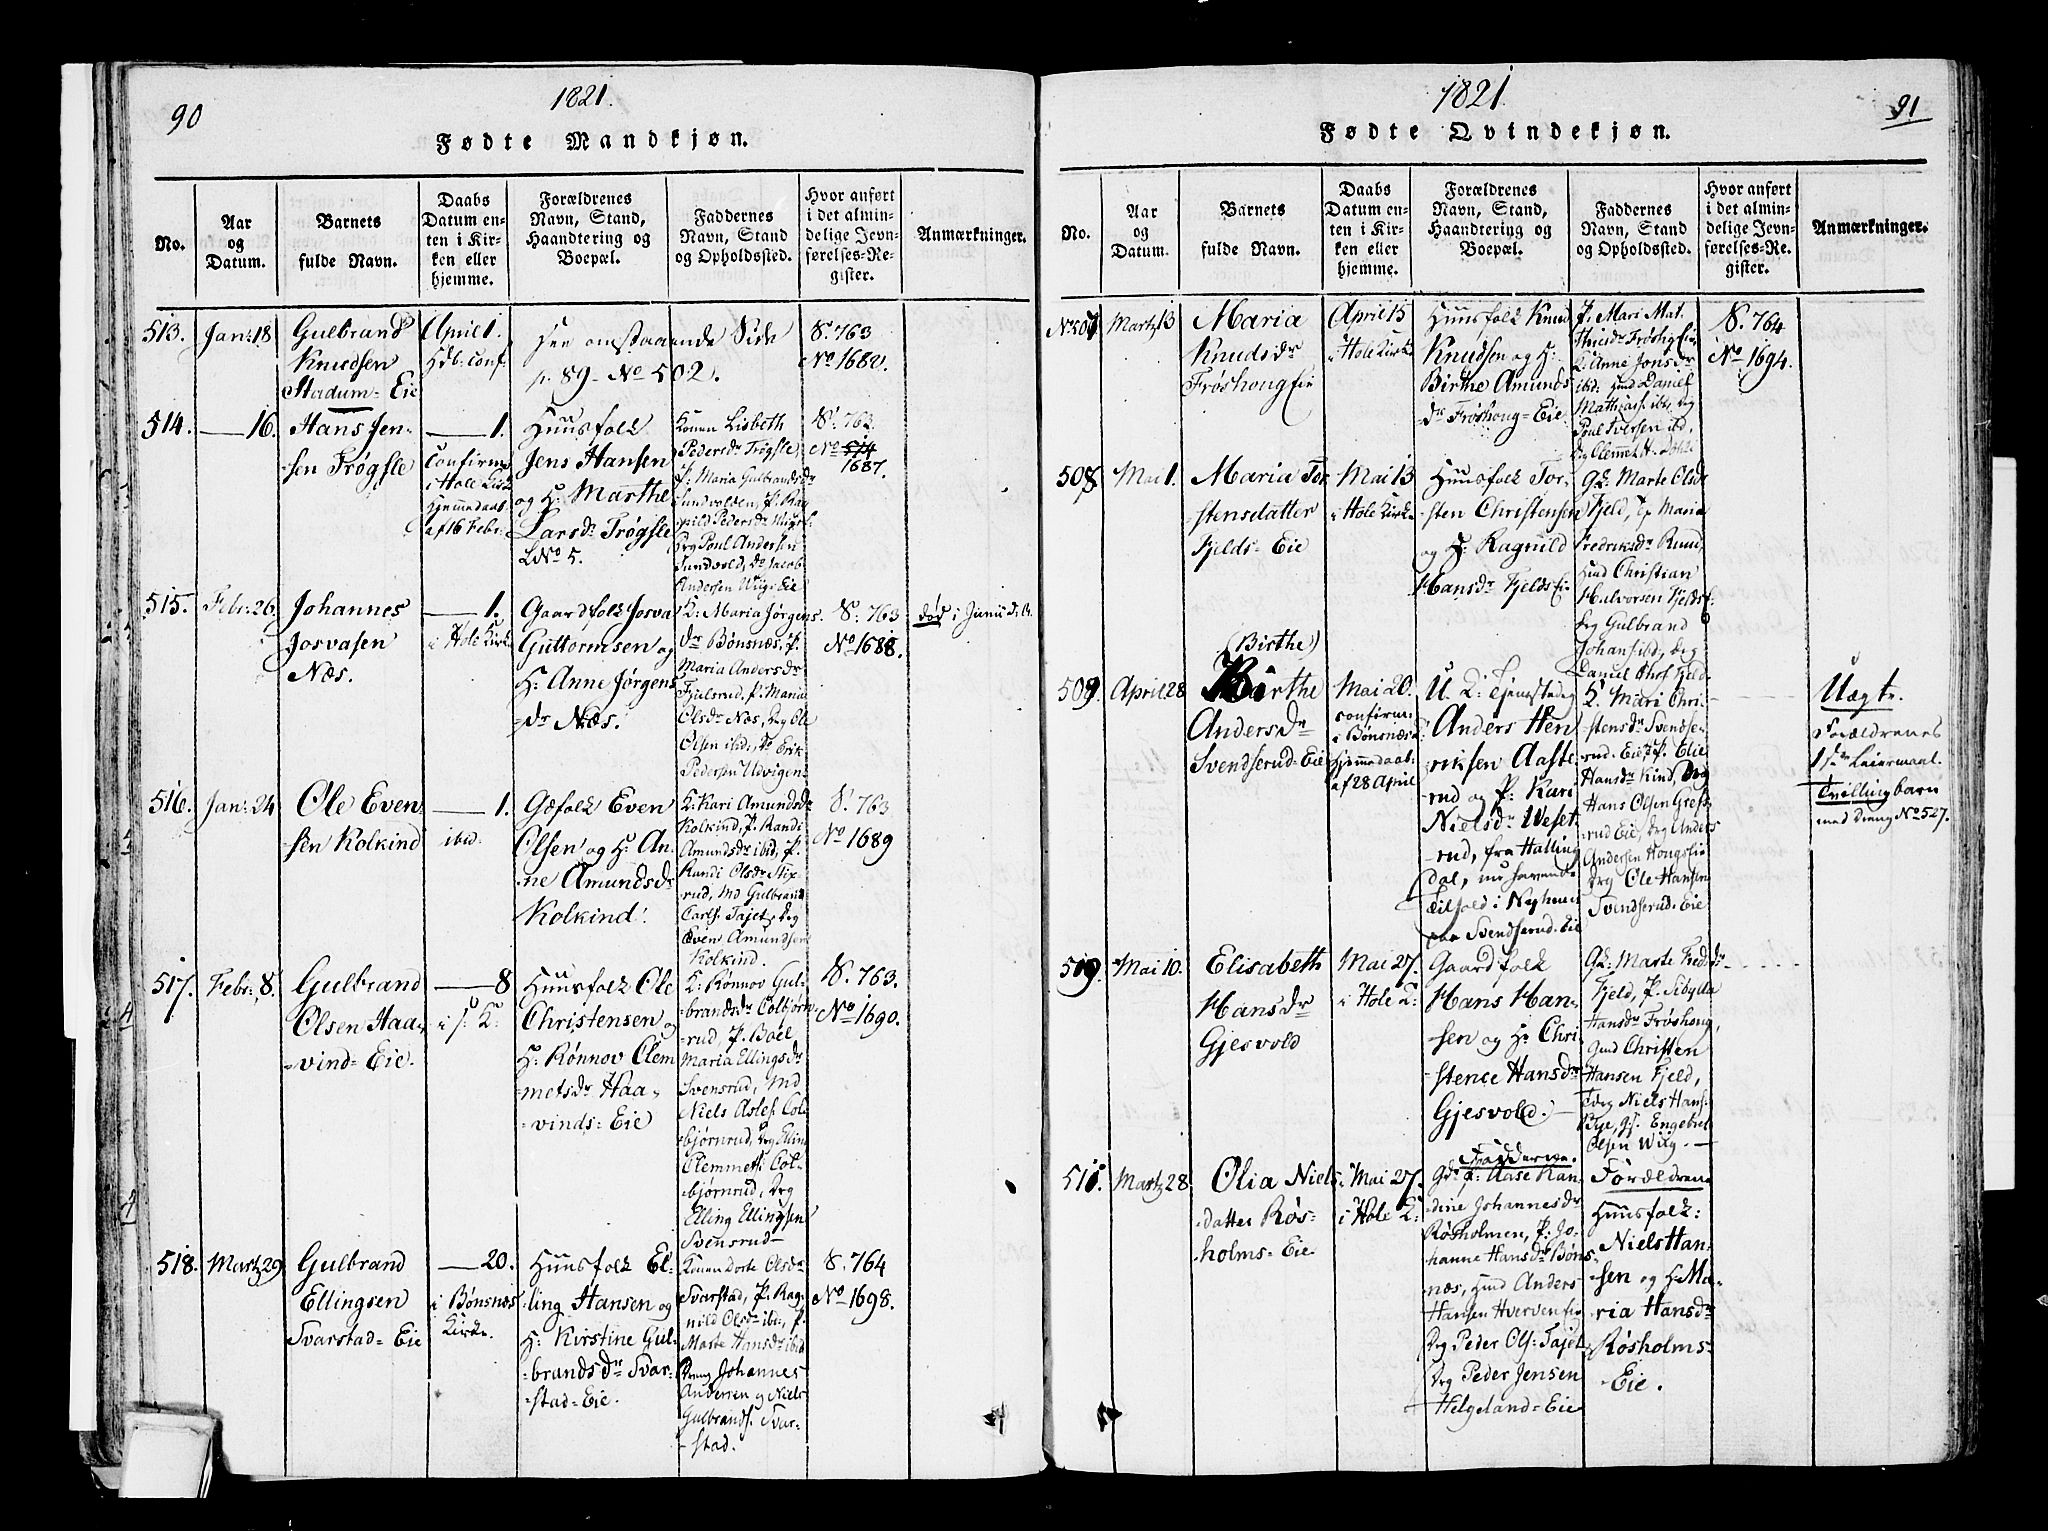 90
1821.
Fødte Mandkjøn.
No.
Aar
og
Datum.
Barnets
fulde Navn.
Daabs
Datum en-
ten i Kir-
ken eller
hjemme.
Forældrenes
Navn, Stand,
Haandtering og
Boepæl.
Faddernes
Navn, Stand
og Opholdssted.
Hvor anført
i det almin-
delige Jevn-
førelses-Re-
gister.
Anmærkninger.
513.
Jan: 18
Gulbrand
Knudsen
Stadum-Eie
April 1.
Hdb: conf.
See omstaaende Side
p. 89 - No 502.
S. 763
No 1680.
514.
— 16.
Hans Jen-
sen Trøgsle
— 1.
Confirm.
i Hole Kirk
hjemmedøbt
af 16 Febr:
Huusfolk
Jens Hansen
og H: Marthe
Larsdr Trøgsle
LNo 5.
Konen Lisbeth
Pedersdr Trøgsle,
P: Maria Gulbrandsdr
Sundvolden, P. Rag
nild Pedersdr
Drg Poul Andersen
Sundvold, Do Jacob
Andersen Wiigs Eie
S. 763
No 514
1687.
515.
Febr: 26
Johannes
Josvasen
Næs.
— 1.
i Hole Kirk
Gaardfolk Josva
Guttormsen og
H: Anne Jørgens
-dr Næs.
K: Maria Jørgens
dr Bønsnæs, P.
Maria Andersdr
Fjelsrud, P: Maria
Olsdr Næs, Drg Ole
Olsen ibid, do Erik
Pedersen Udvigen
S. 763
No 1688.
død i Junii d: A:
516.
Jan: 24
Ole Even
-sen Kolkind
— 1.
ibid.
Gdfolk Even
Olsen og H: An-
-ne Amundsdr
Kolkind.
K: Kari Amundsdr
Kolkind, P. Randi
Amundsdr ibid, P.
Randi Olsdr Stix-
rud, Md Gulbrand
Carls: Tajet, Drg
Even Amundsen
Kolkind.
S. 763
No 1689
517.
Febr: 8.
Gulbrand
Olsen Haa-
-vind-Eie.
— 8
i s: K:
Huusfolk Ole
Christensen og
H: Rønnov Clem
-metsdr Haa-
-vinds-Eie
K: Rønnov Gul-
brandsdr Colbjørn-
-rud, P. Boel
Maria Ellingsdr
Svensrud, Md
Niels Asles: Col-
-bjørnrud, Drg Elling
Clemmets: Col-
-bjørnrud, Drg
Elling Ellingsen
Svensrud -
S. 763.
No 1690.
518.
Martz 29
Gulbrand
Ellingsen
Svarstad-Eie
— 20.
i Bønsnæs
Kirke.
Huusfolk El-
-ling Hansen og
H: Kirstine Gul-
-brandsdr Svar-
-stad-Eie.
Konen Dorte Olsdr
Svarstad, P: Rag-
nild Olsdr ibid, P.
Marte Hansdr ibid
Dreng Johannes
Andersen og Niels
Gulbrands: Svar-
-stad.
S. 764
No 1698.
1821.
91
Fødte Qvindekjøn.
No.
Aar
og
Datum.
Barnets
fulde Navn.
Daabs
Datum en-
ten i Kir-
ken eller
hjemme.
Forældrenes
Navn, Stand,
Haandtering og
Boepæl.
Faddernes
Navn, Stand
og Opholdssted.
Hvor anført
i det almin-
delige Jevn-
førelses-Re-
gister.
Anmærkninger.
No 507
Martz 13
Maria
Knudsdr
Frøshoug Eie
April 15
i Hole Kirke
Huusfolk Knud
Knudsen og H:
Birthe Amunds
dr Frøshoug-Eie
P. Mari Mat
thiesdr Frøshg Eie
K: Anne Jonsdr
ibid: Huusd Daniel
Mathias: ibid, Drg
Poul Iversen ibid,
Drg Clemmet H.
S. 764
No 1694.
508
Mai 1.
Maria Tor
stensdatter
Fjelds-Eie
Mai 13
i Hole Kirke
Huusfolk Tor-
sten Christensen
og H: Ragnild
Hansdr Fjelds Eie
Gk: Marte Olsdr
Fjeld, P Maria
Fredriksdr Ruud,
Huusd Christian
Halvorsen Fjelds E:
Drg Gulbrand
Johans: ibid, Drg
Daniel Chrs: Fjeld.
509.
April 28
(Birthe)
Birthe
Andersdr
Svendserud-Eie
Mai 20.
confirm:
i Bønsnæs K:
hjemmedøbt
af 28 April
U. K: Tjenestedrg
Anders Hen
riksen Aaste
rud og P: Kari
Nielsdr Weset
-rud, fra Halling
dal, nu havende
Tilhold i
paa Svendserud-Eie
K. Mari Chri-
stensdr Svendse-
rud-Eie, P. Elie
Hansdr Kind, Drg
Hans Olsen Græs-
rud Eie, Drg Anders
Andersen Hougs Eie
Drg Ole Hansen
Svendserud-Eie
Uægte.
Forældrenes
1ste Leiermaal.
Tvillingbarn
med Dreng No 527.
510.
Mai 10.
Elisabeth
Hansdr
Gjesvold
Mai 27.
i Hole K:
Gaardfolk
Hans Han-
-sen og H: Chri-
stence Hansdr
Gjesvold. -
Gk: Marte Fredsdr
Fjeld, P. Sibylla
Hansdr Frøshoug,
Gmd Christen
Hansen Fjeld,
Drg Niels Hans:
Bye, gs. Engebret
Olsen Wiig. -
511.
Martz 28
Olia Niels
-datter Røs-
-holms-Eie
Mai 27.
i Hole K:
Fadderne.
Gdr P: Aase Kan
dine Johannesdr
Røsholmen, P. Jo-
hanne Hansdr Bøns-
næs, Huusd Anders
Hansen Hverven Eie
Drg Peder Ols: Tajet
Drg Peder Jensen
Helgeland-Eie
Forældrene
Huusfolk:
Niels Han-
-sen og H: Ma-
ria Hansdr
Røsholms-
-Eie.